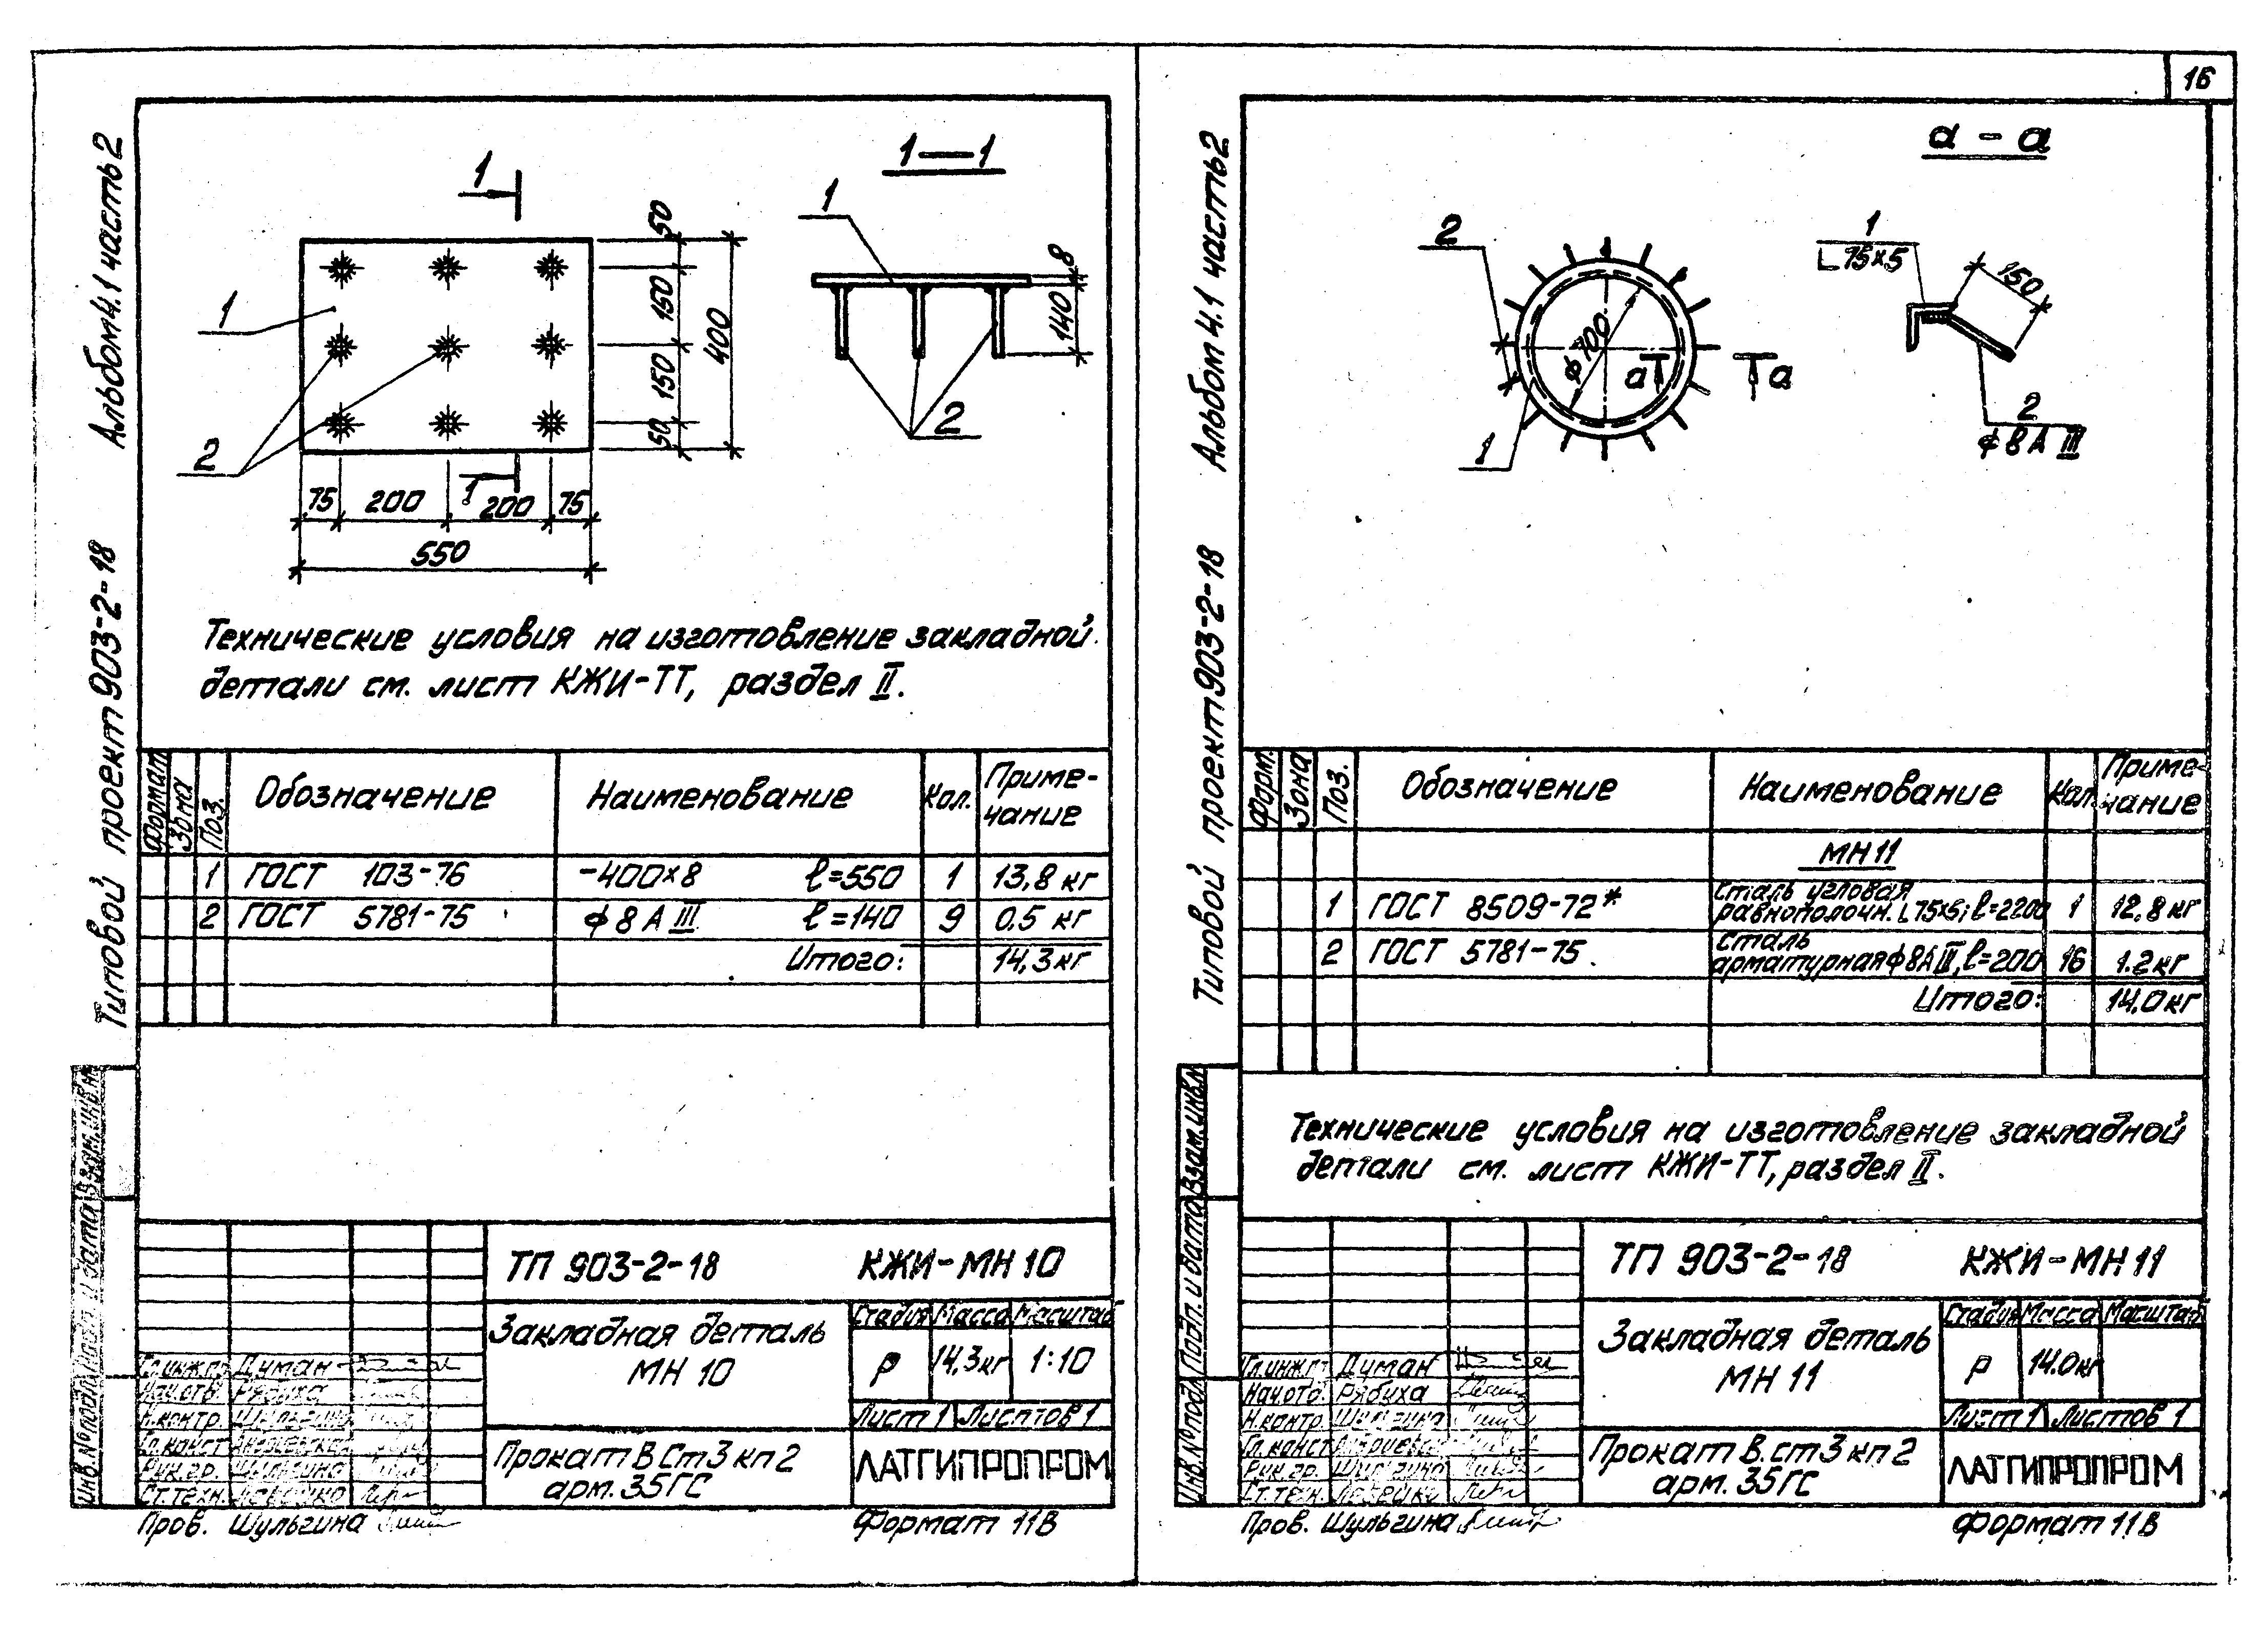 16
Альбом 4.1 часть 2
Типовой проект 903-2-18
1
1—1
1
1
2
2
50
150
150
50
400
8
140
75
200
1
200
75
550
Технические условия на изготовление закладной
детали см. лист КЖИ-ТТ, раздел II.
Формат
Зона
Поз.
Обозначение
Наименование
Кол.
Приме-
чание
1 ГОСТ 103-76 -400×8 ℓ=550 1 13,8 кг
2 ГОСТ 5781-75 ϕ8 А III ℓ=140 9 0,5 кг
Итого: 14,3 кг
Взам. инв. №
Подп. и дата
Инв. № подл.
ТП 903-2-18 КЖИ-МН 10
Закладная деталь
МН 10
Стадия Масса Масштаб
Р 14,3кг 1:10
Лист 1 Листов 1
Прокат В Ст3 кп2
арм. 35ГС
ЛАТГИПРОПРОМ
Гл.инж.пр. Думан
Нач.отд. Рябуха
Н.контр. Шульгина
Гл.конст.
Рук.гр. Шульгина
Ст.техн.
Пров. Шульгина
Формат 11В
Альбом 4.1 часть 2
Типовой проект 903-2-18
а - а
2
1
ϕ700
а
а
1
∟75×5
150
2
ϕ8 А III
Форм.
Зона
Поз.
Обозначение
Наименование
Кол.
Приме-
чание
МН 11
Сталь угловая
1 ГОСТ 8509-72* равнополочн. ∟75×5; ℓ=2200 1 12,8 кг
Сталь
2 ГОСТ 5781-75 арматурная ϕ8А III, ℓ=200 16 1.2 кг
Итого: 14,0 кг
Технические условия на изготовление закладной
детали см. лист КЖИ-ТТ, раздел II.
Взам. инв. №
Подп. и дата
Инв. № подл.
ТП 903-2-18 КЖИ-МН 11
Закладная деталь
МН 11
Стадия Масса Масштаб
Р 14.0кг
Лист 1 Листов 1
Прокат В.ст3 кп2
арм. 35ГС
ЛАТГИПРОПРОМ
Гл.инж.п Думан
Нач.отд. Рябуха
Н.контр. Шульгина
Гл.конст.
Рук.гр. Шульгина
Ст.тех.
Пров. Шульгина
Формат 11В